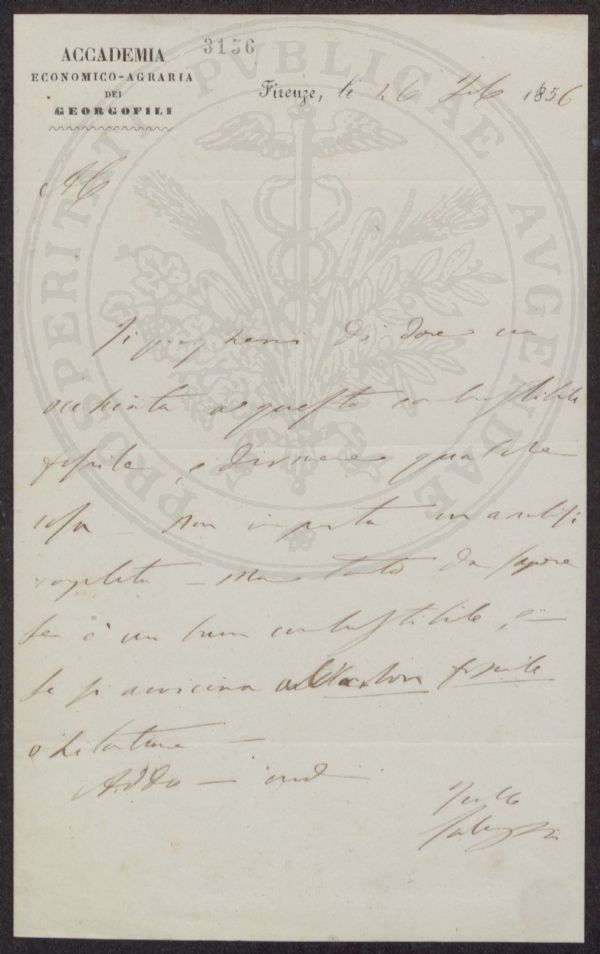 ACCADEMIA
ECONOMICO-AGRARIA
DEI
GEORGOFILI
3156
Firenze, le 26 1856
PROSPERITATI PVBLICAE AVGENDAE
di dare un
occhiata a questo combustibile
fossile, e dirmene qualche
cosa – non importa un analisi
completa – ma tanto da sapere
se è un buon combustibile, e
se si avvicina al Carbon fossile
o Litantrace –
Addio –